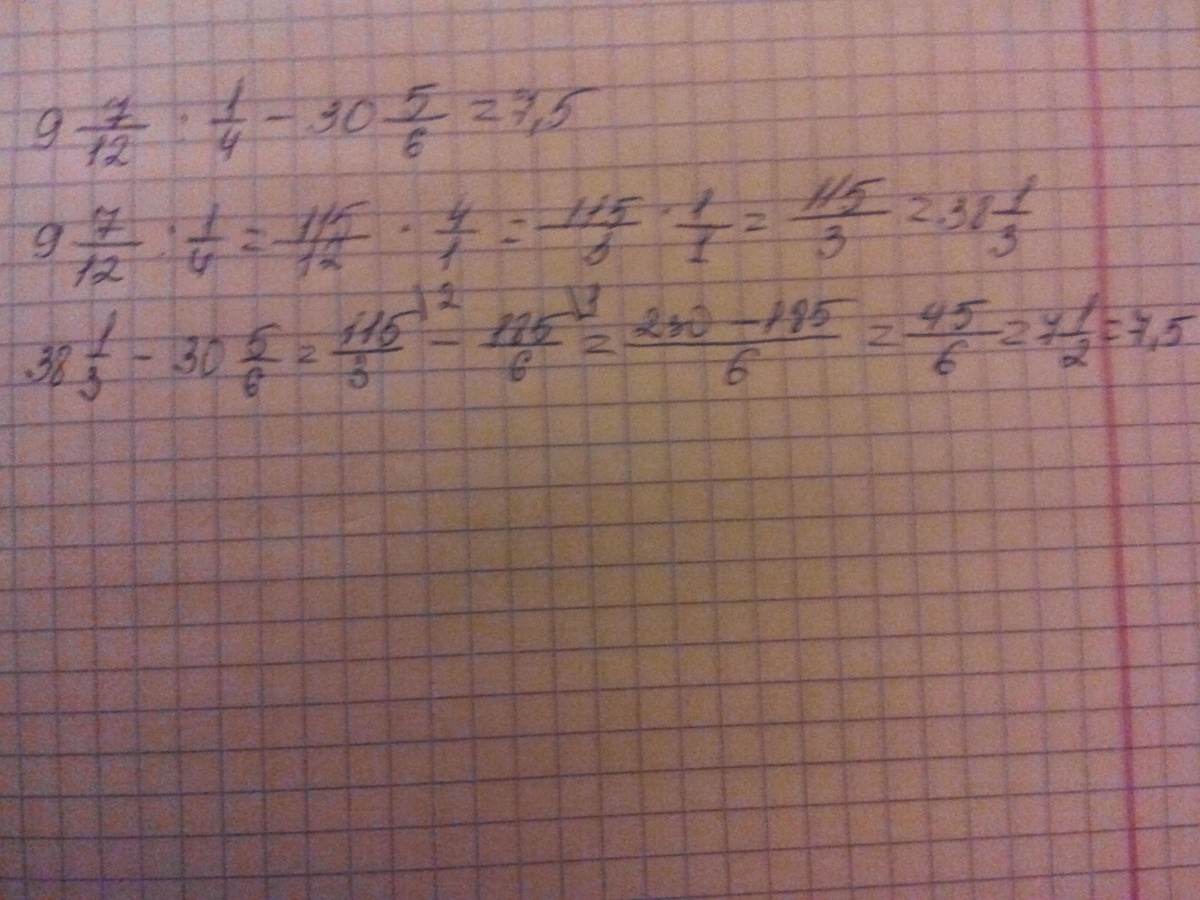 9 7/12 : 1/4 - 30 5/6 = 7,5
9 7/12 : 1/4 = 115/12 · 4/1 = 115/3 · 1/1 = 115/3 = 38 1/3
38 1/3 - 30 5/6 = 115/3 \2 - 185/6 \1 = 230-185/6 = 45/6 = 7 1/2 = 7,5